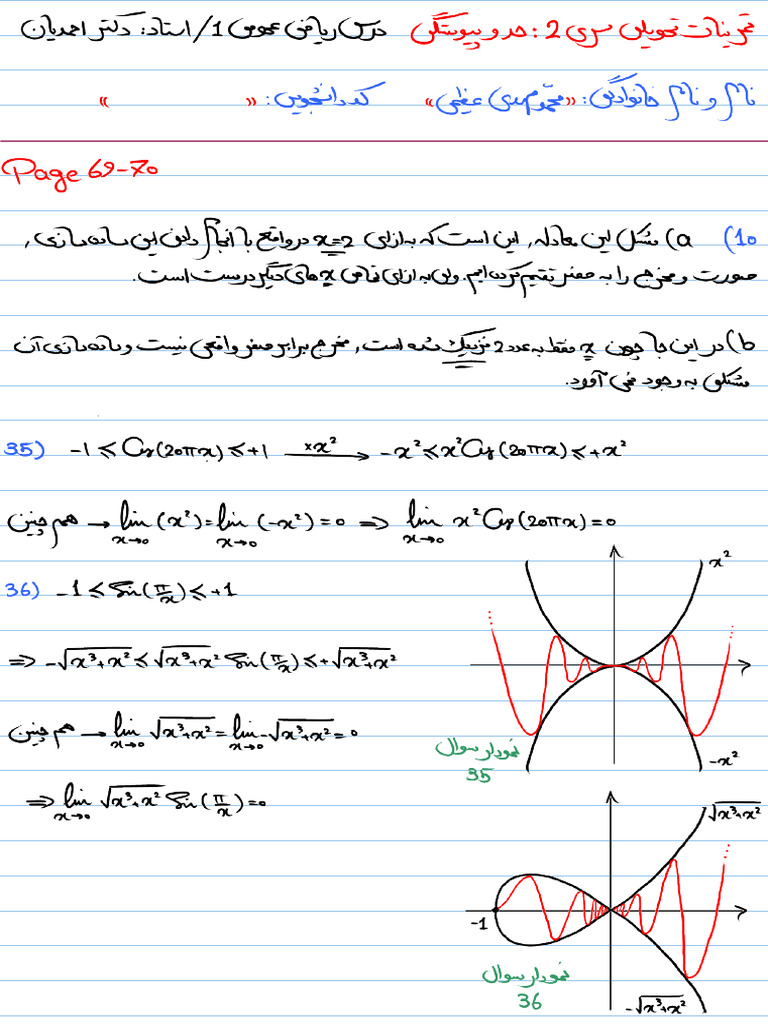 تمرینات تحویلی سری 2: حد و پیوستگی درس ریاضی عمومی 1/ استاد: دکتر احمدیان
نام و نام خانوادگی: «محمدمهدی عظیمی» کد دانشجویی: « »
Page 69-70
10) a) مشکل این معادله, این است که به ازای x=2 در واقع با انجام دادن این ساده سازی,
صورت و مخرج را به صفر تقسیم کرده ایم. ولی به ازای تمامی x های دیگر درست است.
b) در این جا چون x فقط به عدد 2 نزدیک شده است, مخرج برابر صفر واقعی نیست و ساده سازی آن
مشکلی به وجود نمی آورد.
35) -1 ≤ Cos(20πx) ≤ +1 —×x²→ -x² ≤ x² Cos(20πx) ≤ +x²
هم چنین → lim x→0 (x²) = lim x→0 (-x²) = 0 ⇒ lim x→0 x² Cos(20πx) = 0
36) -1 ≤ Sin(π/x) ≤ +1
⇒ -√(x³+x²) ≤ √(x³+x²) Sin(π/x) ≤ +√(x³+x²)
هم چنین → lim x→0 √(x³+x²) = lim x→0 -√(x³+x²) = 0
⇒ lim x→0 √(x³+x²) Sin(π/x) = 0
x²
-x²
نمودار سوال
35
√(x³+x²)
-1
-√(x³+x²)
نمودار سوال
36